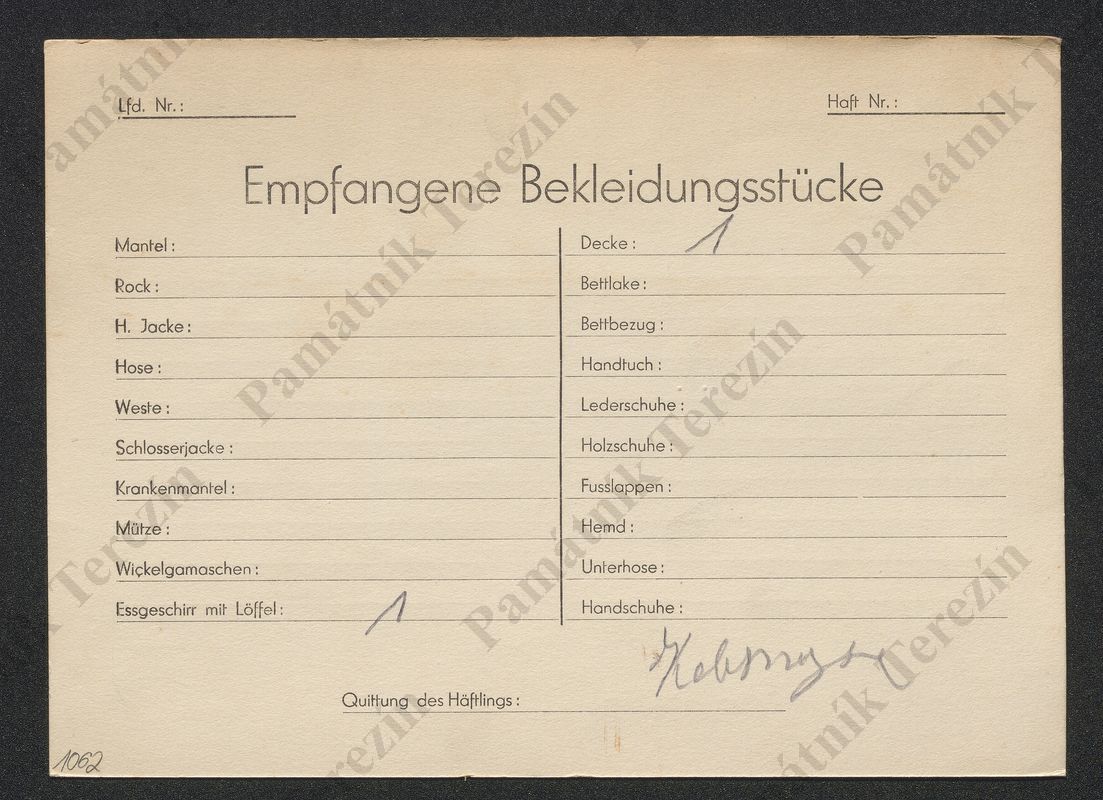 Lfd. Nr.:
Haft Nr.:
Empfangene Bekleidungsstücke
Mantel:
Rock:
H. Jacke:
Hose:
Weste:
Schlosserjacke:
Krankenmantel:
Mütze:
Wickelgamaschen:
Essgeschirr mit Löffel: 1
Decke: 1
Bettlake:
Bettbezug:
Handtuch:
Lederschuhe:
Holzschuhe:
Fusslappen:
Hemd:
Unterhose:
Handschuhe:
Quittung des Häftlings:
1062
Památník Terezín
Památník Terezín
Památník Terezín